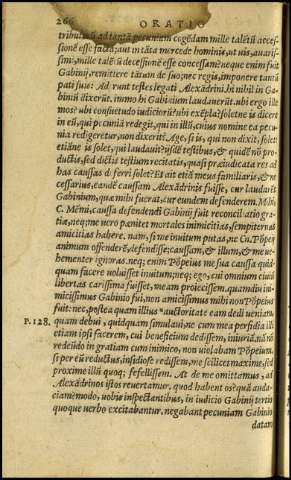 266 ORATIO
tributũ ad tantã pecuniam cogẽdam mille talẽtũ acces-
sionẽ esse factã: aut in tãta mercede hominis, ut uis, auaris-
simi, mille talẽtũ decessionẽ esse concessamẽ: neq; enim fuit
Gabinij, remittere tãtum de suo: nec regis, imponere tantũ
pati suis: Ad runt testes legati Alexãdrini. hi nihil in Ga-
biniũ dixerũt. immo hi Gabiniũ laudauerũt. ubi ergo ille
mos? ubi consuetudo iudiciorũ? ubi exẽpla? solet ne is dicere
in eũ, qui pecuniã redegit, qui in illũ, cuius nomine ea pecu-
nia redigeretur, non dixerit? Age, si is, qui non dixit, solet
etiã ne is solet, qui laudauit? ijsdẽ testibus, & quidẽ nõ pro-
ductis, sed dictis testium recitatis, quasi præiudicata res ad
has caussas d ferri solet? Et ait etiã meus familiaris, & ne-
cessarius, eandẽ caussam Alexãdrinis fuisse, cur laudarẽt
Gabinium, quæ mihi fuerat, cur eundem defenderem. Mihi,
C. Mẽmi, caussa defendẽdi Gabinij fuit reconciliatio gra-
tiæ, neq; me uero pœnitet mortales inimicitias, sempiternas
amicitias habere. nam, si me inuitum putas, ne Cn. Põpeij
animum offenderẽ, defendisse; caussam, & illum, & me ue-
hementer ignoras. neq; enim Põpeius me sua caussa quid-
quam facere uoluisset inuitum; neq; ego, cui omnium ciuiũ
libertas carissima fuisset, meam proiecissem. quamdiu ini-
micissimus Gabinio fui, non amicissimus mihi nõ Põpeius
fuit: nec, postea quam illius auctoritate eam dedi ueniam,
P. 128. quam debui, quidquam simulaui, ne cum mea perfidia illi
etiam ipsi facerem, cui beneficium dedissem, iniuriã. nã nõ
redeũdo in gratiam cum inimico, non uiolabam Põpeium,
si per eũ reductus, insidiose redissem, me scilicet maxime, sed
proxime illũ quoq; fefellissem. At de me omittamus, ad
Alexãdrinos istos reuertamur. quod habent os? quã auda-
ciam? modo, uobis inspectantibus, in iudicio Gabinij tertio
quoque uerbo excitabantur. negabant pecuniam Gabinio
datam